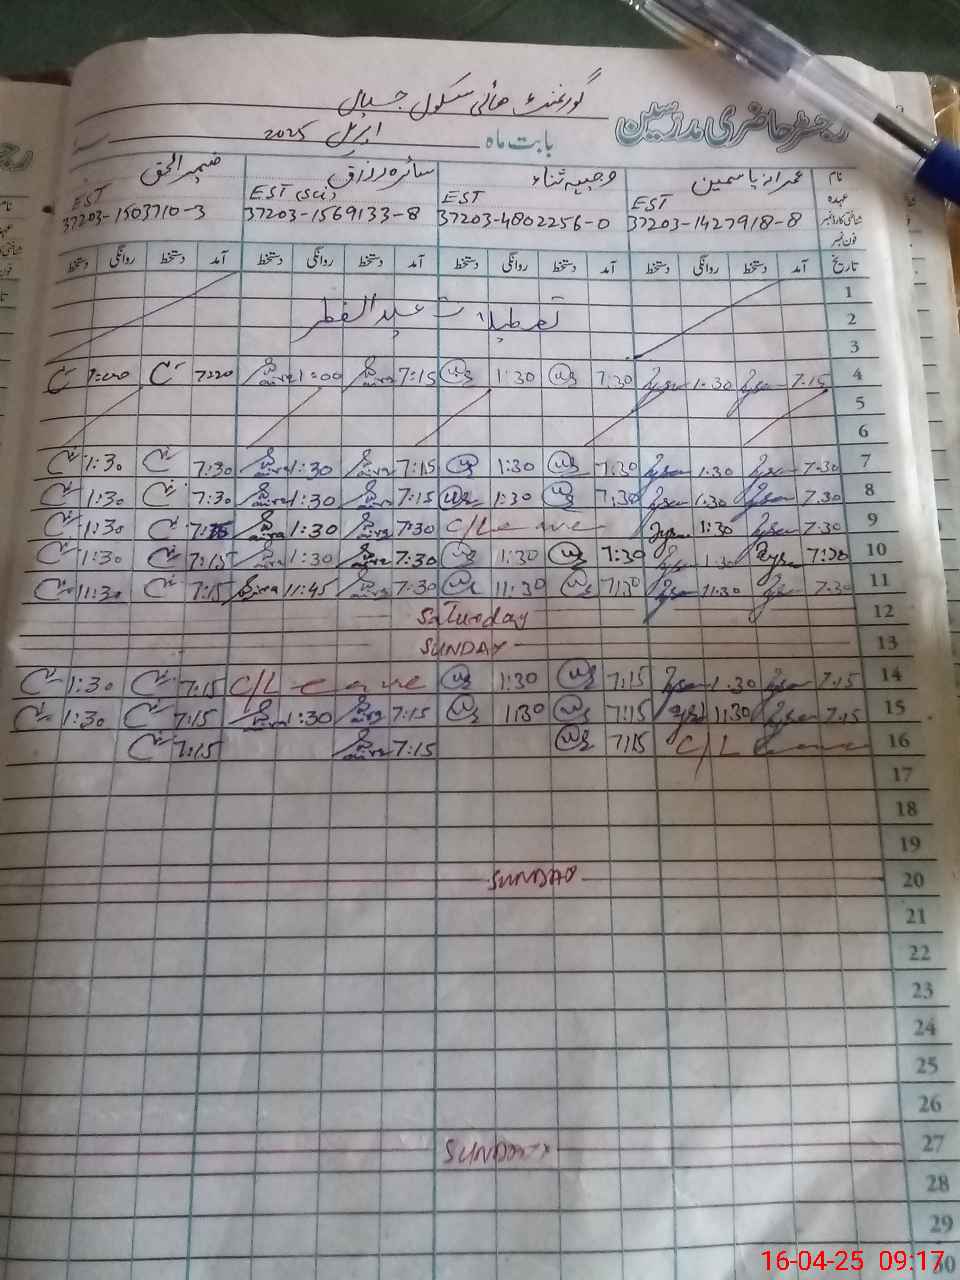 گورنمنٹ ہائی سکول جسیال
رجسٹر حاضری مدرسین
بابت ماہ اپریل 2025
نام عمرانہ یاسمین وجیہہ ثناء سائرہ رزاق ضمیر الحق
عہدہ EST EST EST (Sci) EST
شناختی کارڈ نمبر 37203-1427918-8 37203-4802256-0 37203-1569133-8 37203-1503710-3
فون نمبر
تاریخ آمد دستخط روانگی دستخط آمد دستخط روانگی دستخط آمد دستخط روانگی دستخط آمد دستخط روانگی دستخط
1
2 تعطیلات عید الفطر
3
4 7:15 1:30 7:30 1:30 7:15 1:00 7:20 1:00
5
6
7 7:30 1:30 7:30 1:30 7:15 1:30 7:30 1:30
8 7:30 1:30 7:30 1:30 7:15 1:30 7:30 1:30
9 7:30 1:30 C/Leave 7:30 1:30 1:30
10 7:30 1:30 7:30 1:30 7:30 1:30 7:15 1:30
11 7:30 11:30 7:30 11:30 7:30 11:45 7:15 11:30
12 Saturday
13 SUNDAY
14 7:15 1:30 7:15 1:30 C/Leave 7:15 1:30
15 7:15 1:30 7:15 1:30 7:15 1:30 7:15 1:30
16 C/Leave 7:15 7:15 7:15
17
18
19
20 SUNDAY
21
22
23
24
25
26
27 SUNDAY
28
29
30
16-04-25 09:17